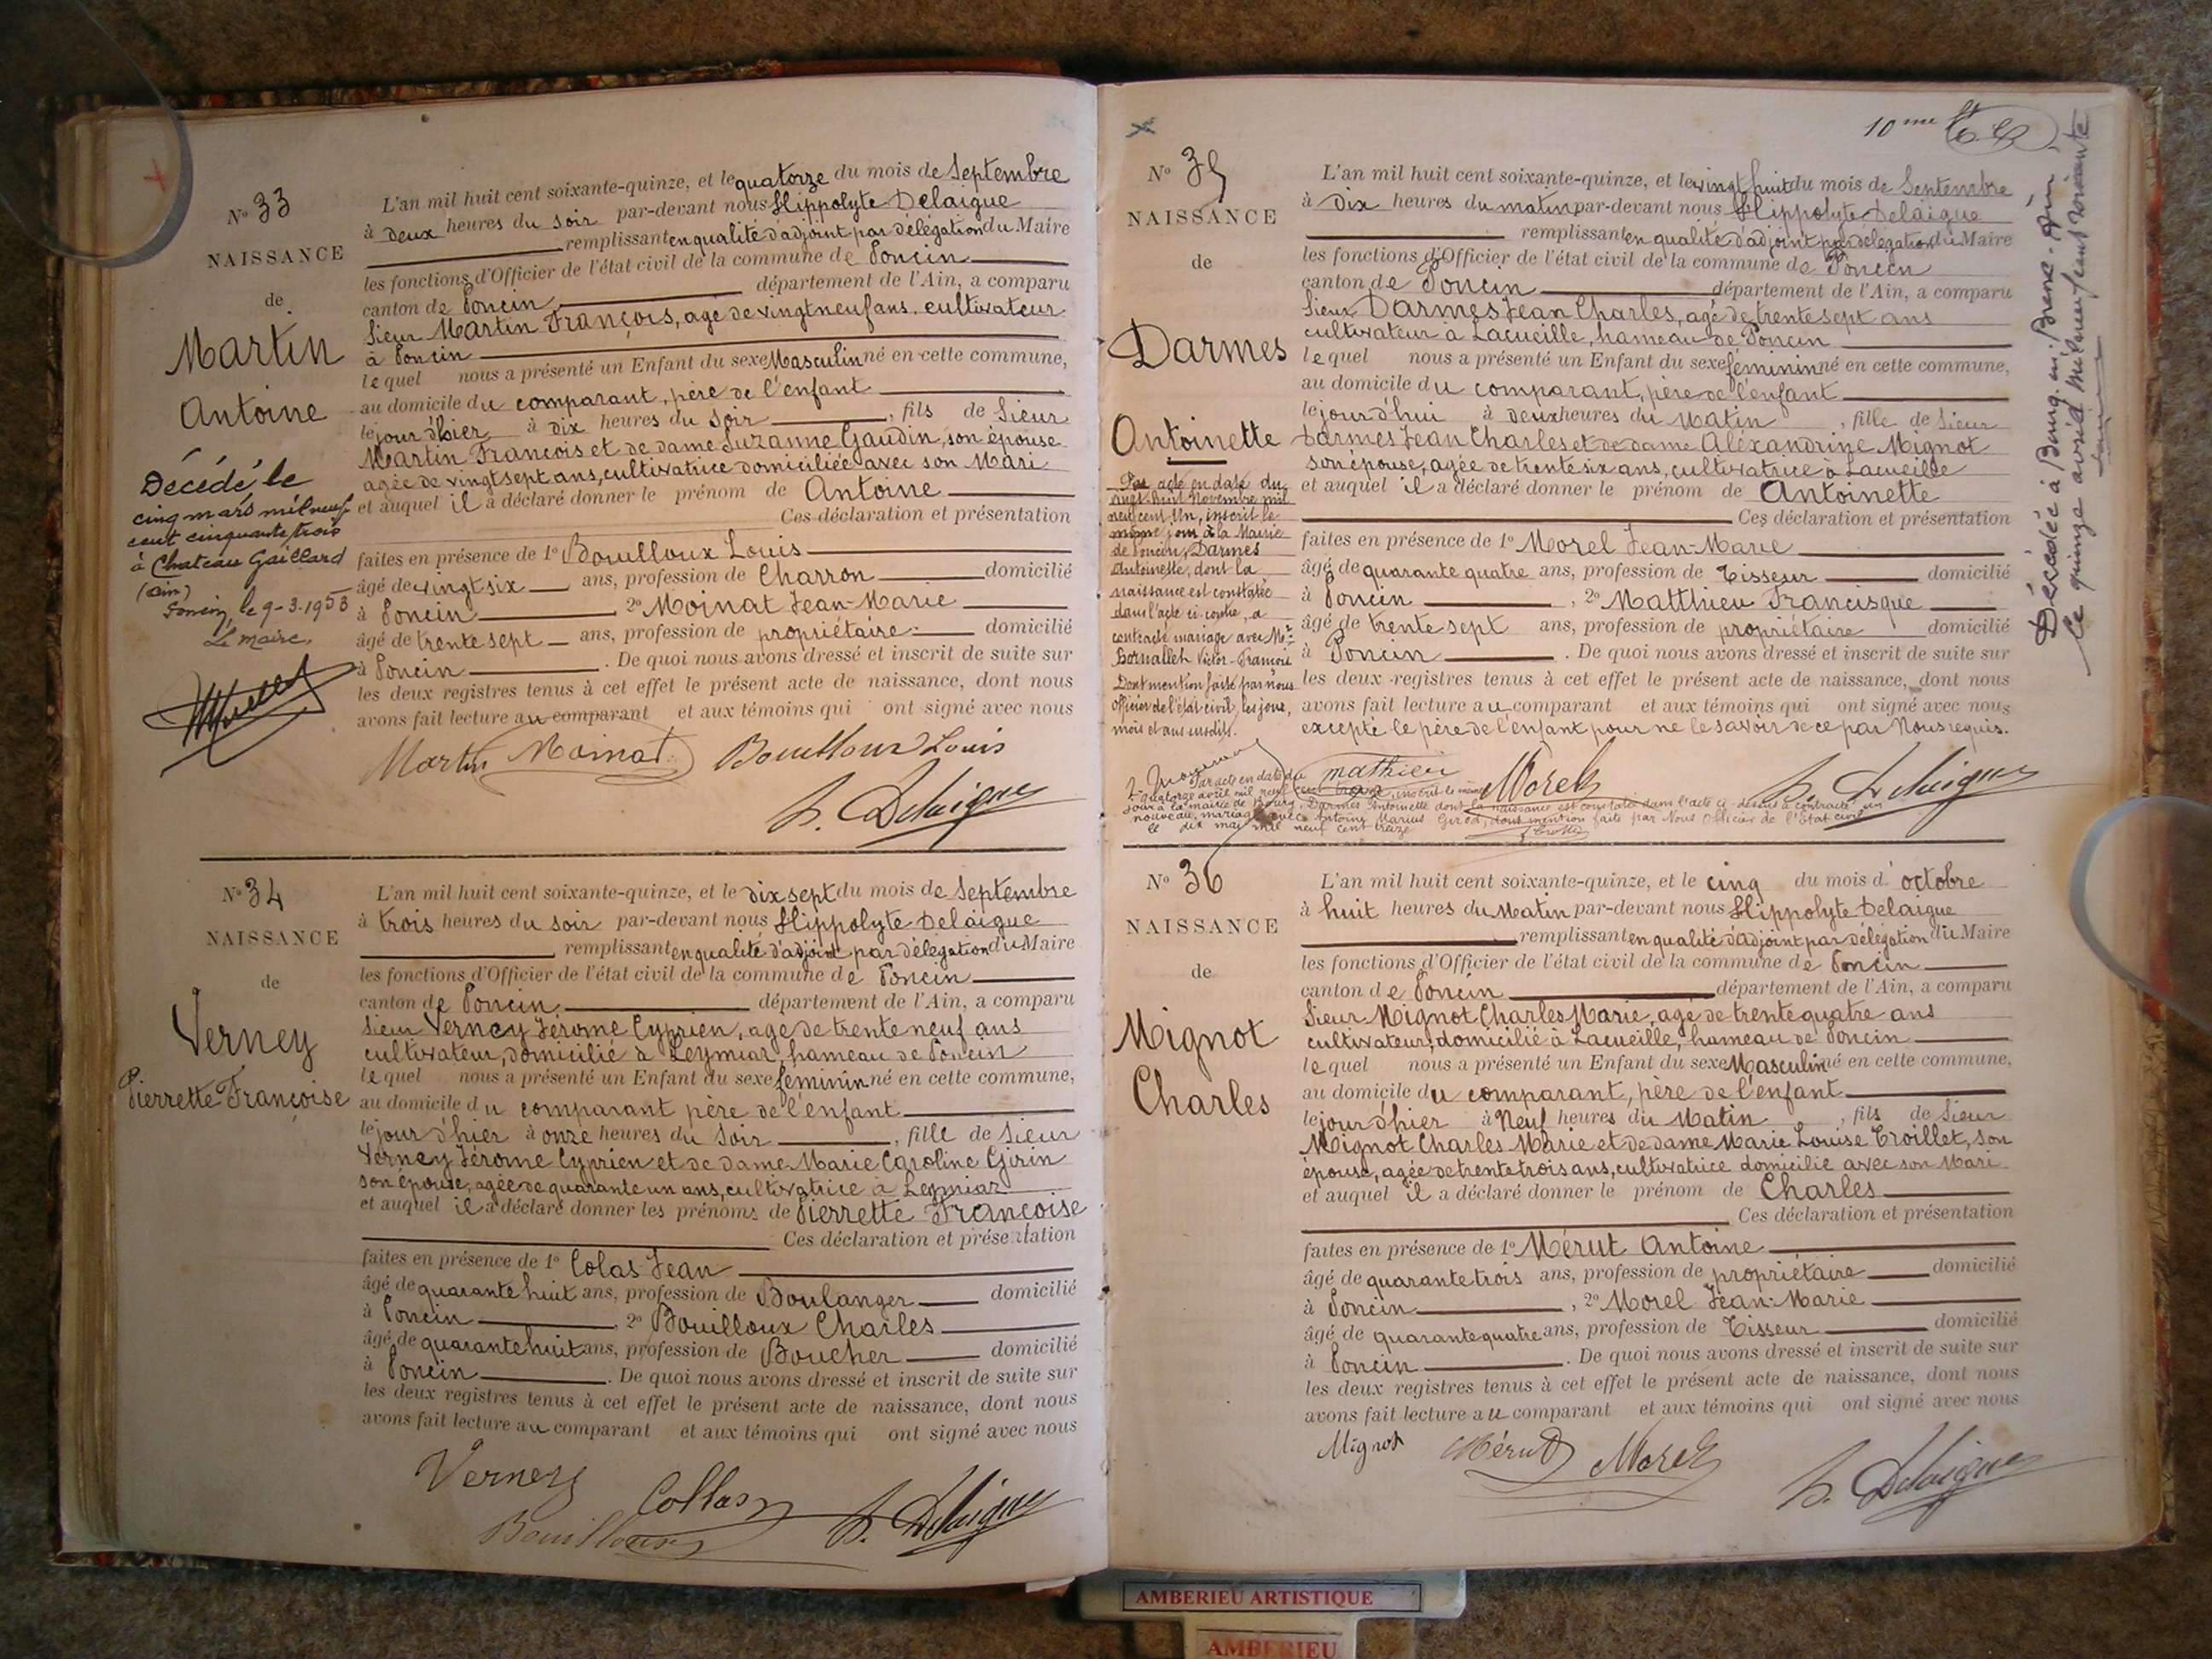 N° 33
NAISSANCE
de
Martin
Antoine
Décédé le
cinq mars mil neuf
cent cinquante trois
à Chateau Gaillard
(ain)
Poncin, le 9-3-1953
Le maire,
L'an mil huit cent soixante-quinze, et le quatorze du mois de Septembre
à Deux heures du Soir par-devant nous Hippolyte Delaigue
remplissant en qualité d'adjoint par délégation du Maire
les fonctions d'Officier de l'état civil de la commune de Poncin
canton de Poncin département de l'Ain, a comparu
Sieur Martin François, agé de vingt neuf ans, cultivateur
à Poncin
lequel nous a présenté un Enfant du sexe Masculin né en cette commune,
au domicile du comparant, père de l'enfant
le jour d'hier à dix heures du Soir, fils de Sieur
Martin Francois et de dame Suzanne Gaudin, son épouse
agée de vingt sept ans, cultivatrice domiciliée avec son Mari
et auquel il a déclaré donner le prénom de Antoine
Ces déclaration et présentation
faites en présence de 1° Bouilloux Louis
âgé de vingt six ans, profession de Charron domicilié
à Poncin 2° Moinat Jean-Marie
âgé de trente sept ans, profession de propriétaire domicilié
à Poncin. De quoi nous avons dressé et inscrit de suite sur
les deux registres tenus à cet effet le présent acte de naissance, dont nous
avons fait lecture au comparant et aux témoins qui ont signé avec nous
Martin Moinat Bouilloux Louis
h. Delaigue
N° 34
NAISSANCE
de
Verney
Pierrette Françoise
L'an mil huit cent soixante-quinze, et le dix sept du mois de Septembre
à trois heures du soir par-devant nous Hippolyte Delaigue
remplissant en qualité d'adjoint par délégation du Maire
les fonctions d'Officier de l'état civil de la commune de Poncin
canton de Poncin département de l'Ain, a comparu
Sieur Verney Jérome Cyprien, agé de trente neuf ans
cultivateur, domicilié à Leymiar, hameau de Poncin
lequel nous a présenté un Enfant du sexe féminin né en cette commune,
au domicile du comparant père de l'enfant
le jour d'hier à onze heures du Soir, fille de Sieur
Verney Jérome Cyprien et de dame Marie Caroline Girin
son épouse, agée de quarante un ans, cultivatrice à Leymiar
et auquel il a déclaré donner les prénoms de Pierrette Françoise
Ces déclaration et présentation
faites en présence de 1° Colas Jean
âgé de quarante huit ans, profession de Boulanger domicilié
à Poncin, 2° Bouilloux Charles
âgé de quarante huit ans, profession de Boucher domicilié
à Poncin. De quoi nous avons dressé et inscrit de suite sur
les deux registres tenus à cet effet le présent acte de naissance, dont nous
avons fait lecture au comparant et aux témoins qui ont signé avec nous
Verney Collas h. Delaigue
Bouilloux
10me
N° 35
NAISSANCE
de
Darmes
Antoinette
Par acte en date du
vingt huit Novembre mil
neuf cent un, inscrit le
même jour à la Mairie
de Poncin, Darmes
Antoinette, dont la
naissance est constatée
dans l'acte ci-contre, a
contracté mariage avec Mr
Victor-François
Dont mention faite par nous
officier de l'état civil, les jour,
mois et an susdits.
L'an mil huit cent soixante-quinze, et le vingt huit du mois de Septembre
à Dix heures du matin par-devant nous Hippolyte Delaigue
remplissant en qualité d'adjoint par délégation du Maire
les fonctions d'Officier de l'état civil de la commune de Poncin
canton de Poncin département de l'Ain, a comparu
Sieur Darmes Jean Charles, agé de trente sept ans
cultivateur à Lacueille, hameau de Poncin
lequel nous a présenté un Enfant du sexe féminin né en cette commune,
au domicile du comparant, père de l'enfant
le jour d'hui à deux heures du Matin, fille de Sieur
Darmes Jean Charles et de dame Alexandrine Mignot
son épouse, agée de trente six ans, cultivatrice à Lacueille
et auquel il a déclaré donner le prénom de Antoinette
Ces déclaration et présentation
faites en présence de 1° Morel Jean-Marie
âgé de quarante quatre ans, profession de Tisseur domicilié
à Poncin, 2° Matthieu Francisque
âgé de trente sept ans, profession de propriétaire domicilié
à Poncin. De quoi nous avons dressé et inscrit de suite sur
les deux registres tenus à cet effet le présent acte de naissance, dont nous
avons fait lecture au comparant et aux témoins qui ont signé avec nous
excepté le père de l'enfant pour ne le savoir de ce par Nous requis.
mathieu Morel h. Delaigue
Par acte en date du
quatorze avril mil neuf cent treize, inscrit le même
jour à la mairie de Bourg, Darmes Antoinette dont la naissance est constatée dans l'acte ci-dessus a contracté un
nouveau mariage avec Antoine Marius Girod, dont mention faite par Nous Officier de l'Etat civil
le dix mai mil neuf cent treize
Décédée à Bourg-en-Bresse - Ain
le quinze avril mil neuf cent soixante
N° 36
NAISSANCE
de
Mignot
Charles
L'an mil huit cent soixante-quinze, et le cinq du mois d'octobre
à huit heures du Matin par-devant nous Hippolyte Delaigue
remplissant en qualité d'adjoint par délégation du Maire
les fonctions d'Officier de l'état civil de la commune de Poncin
canton de Poncin département de l'Ain, a comparu
Sieur Mignot Charles Marie, agé de trente quatre ans
cultivateur, domicilié à Lacueille, hameau de Poncin
lequel nous a présenté un Enfant du sexe Masculin né en cette commune,
au domicile du comparant, père de l'enfant
le jour d'hier à Neuf heures du Matin, fils de Sieur
Mignot Charles Marie et de dame Marie Louise Troillet, son
épouse, agée de trente trois ans, cultivatrice domicilié avec son Mari
et auquel il a déclaré donner le prénom de Charles
Ces déclaration et présentation
faites en présence de 1° Mérut Antoine
âgé de quarante trois ans, profession de propriétaire domicilié
à Poncin, 2° Morel Jean-Marie
âgé de quarante quatre ans, profession de Tisseur domicilié
à Poncin. De quoi nous avons dressé et inscrit de suite sur
les deux registres tenus à cet effet le présent acte de naissance, dont nous
avons fait lecture au comparant et aux témoins qui ont signé avec nous
Mignot Mérut Morel h. Delaigue
AMBERIEU ARTISTIQUE
AMBERIEU